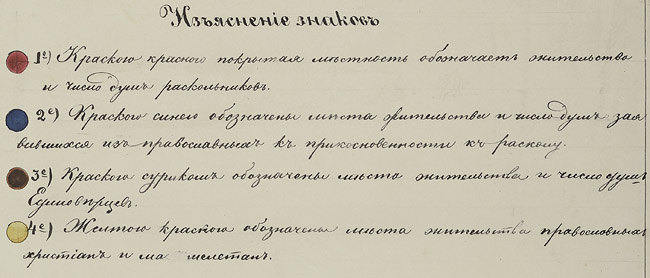 Изъясненіе знаковъ
1е) Краскою красною покрытая мѣстность обозначаетъ жительство
и число душъ раскольниковъ.
2е) Краскою синею обозначены мѣста жительства и число душъ зая
вившихся изъ православныхъ къ прикосновенности къ расколу.
3е) Краскою сурикомъ обозначены мѣста жительства и число душъ
Единовѣрцевъ.
4е) Желтою краскою обозначены мѣста жительства православныхъ
христіанъ и ма гометанъ.